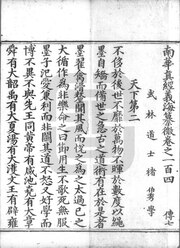 南華真經義海纂微卷之一百四 傳
武林道士褚伯秀學
天下第二
不侈於後世不靡於萬物不暉於數度以繩
墨自矯而備世之急古之道術有在於是者
墨翟禽滑釐聞其風而悅之為之太過已之
大循作為非樂命之曰節用生不歌死無服
墨子汜愛兼利而非鬪其道不怒又好學而
博不異不與先王同黃帝有咸池堯有大章
舜有大韶禹有大夏湯有大濩文王有辟雍